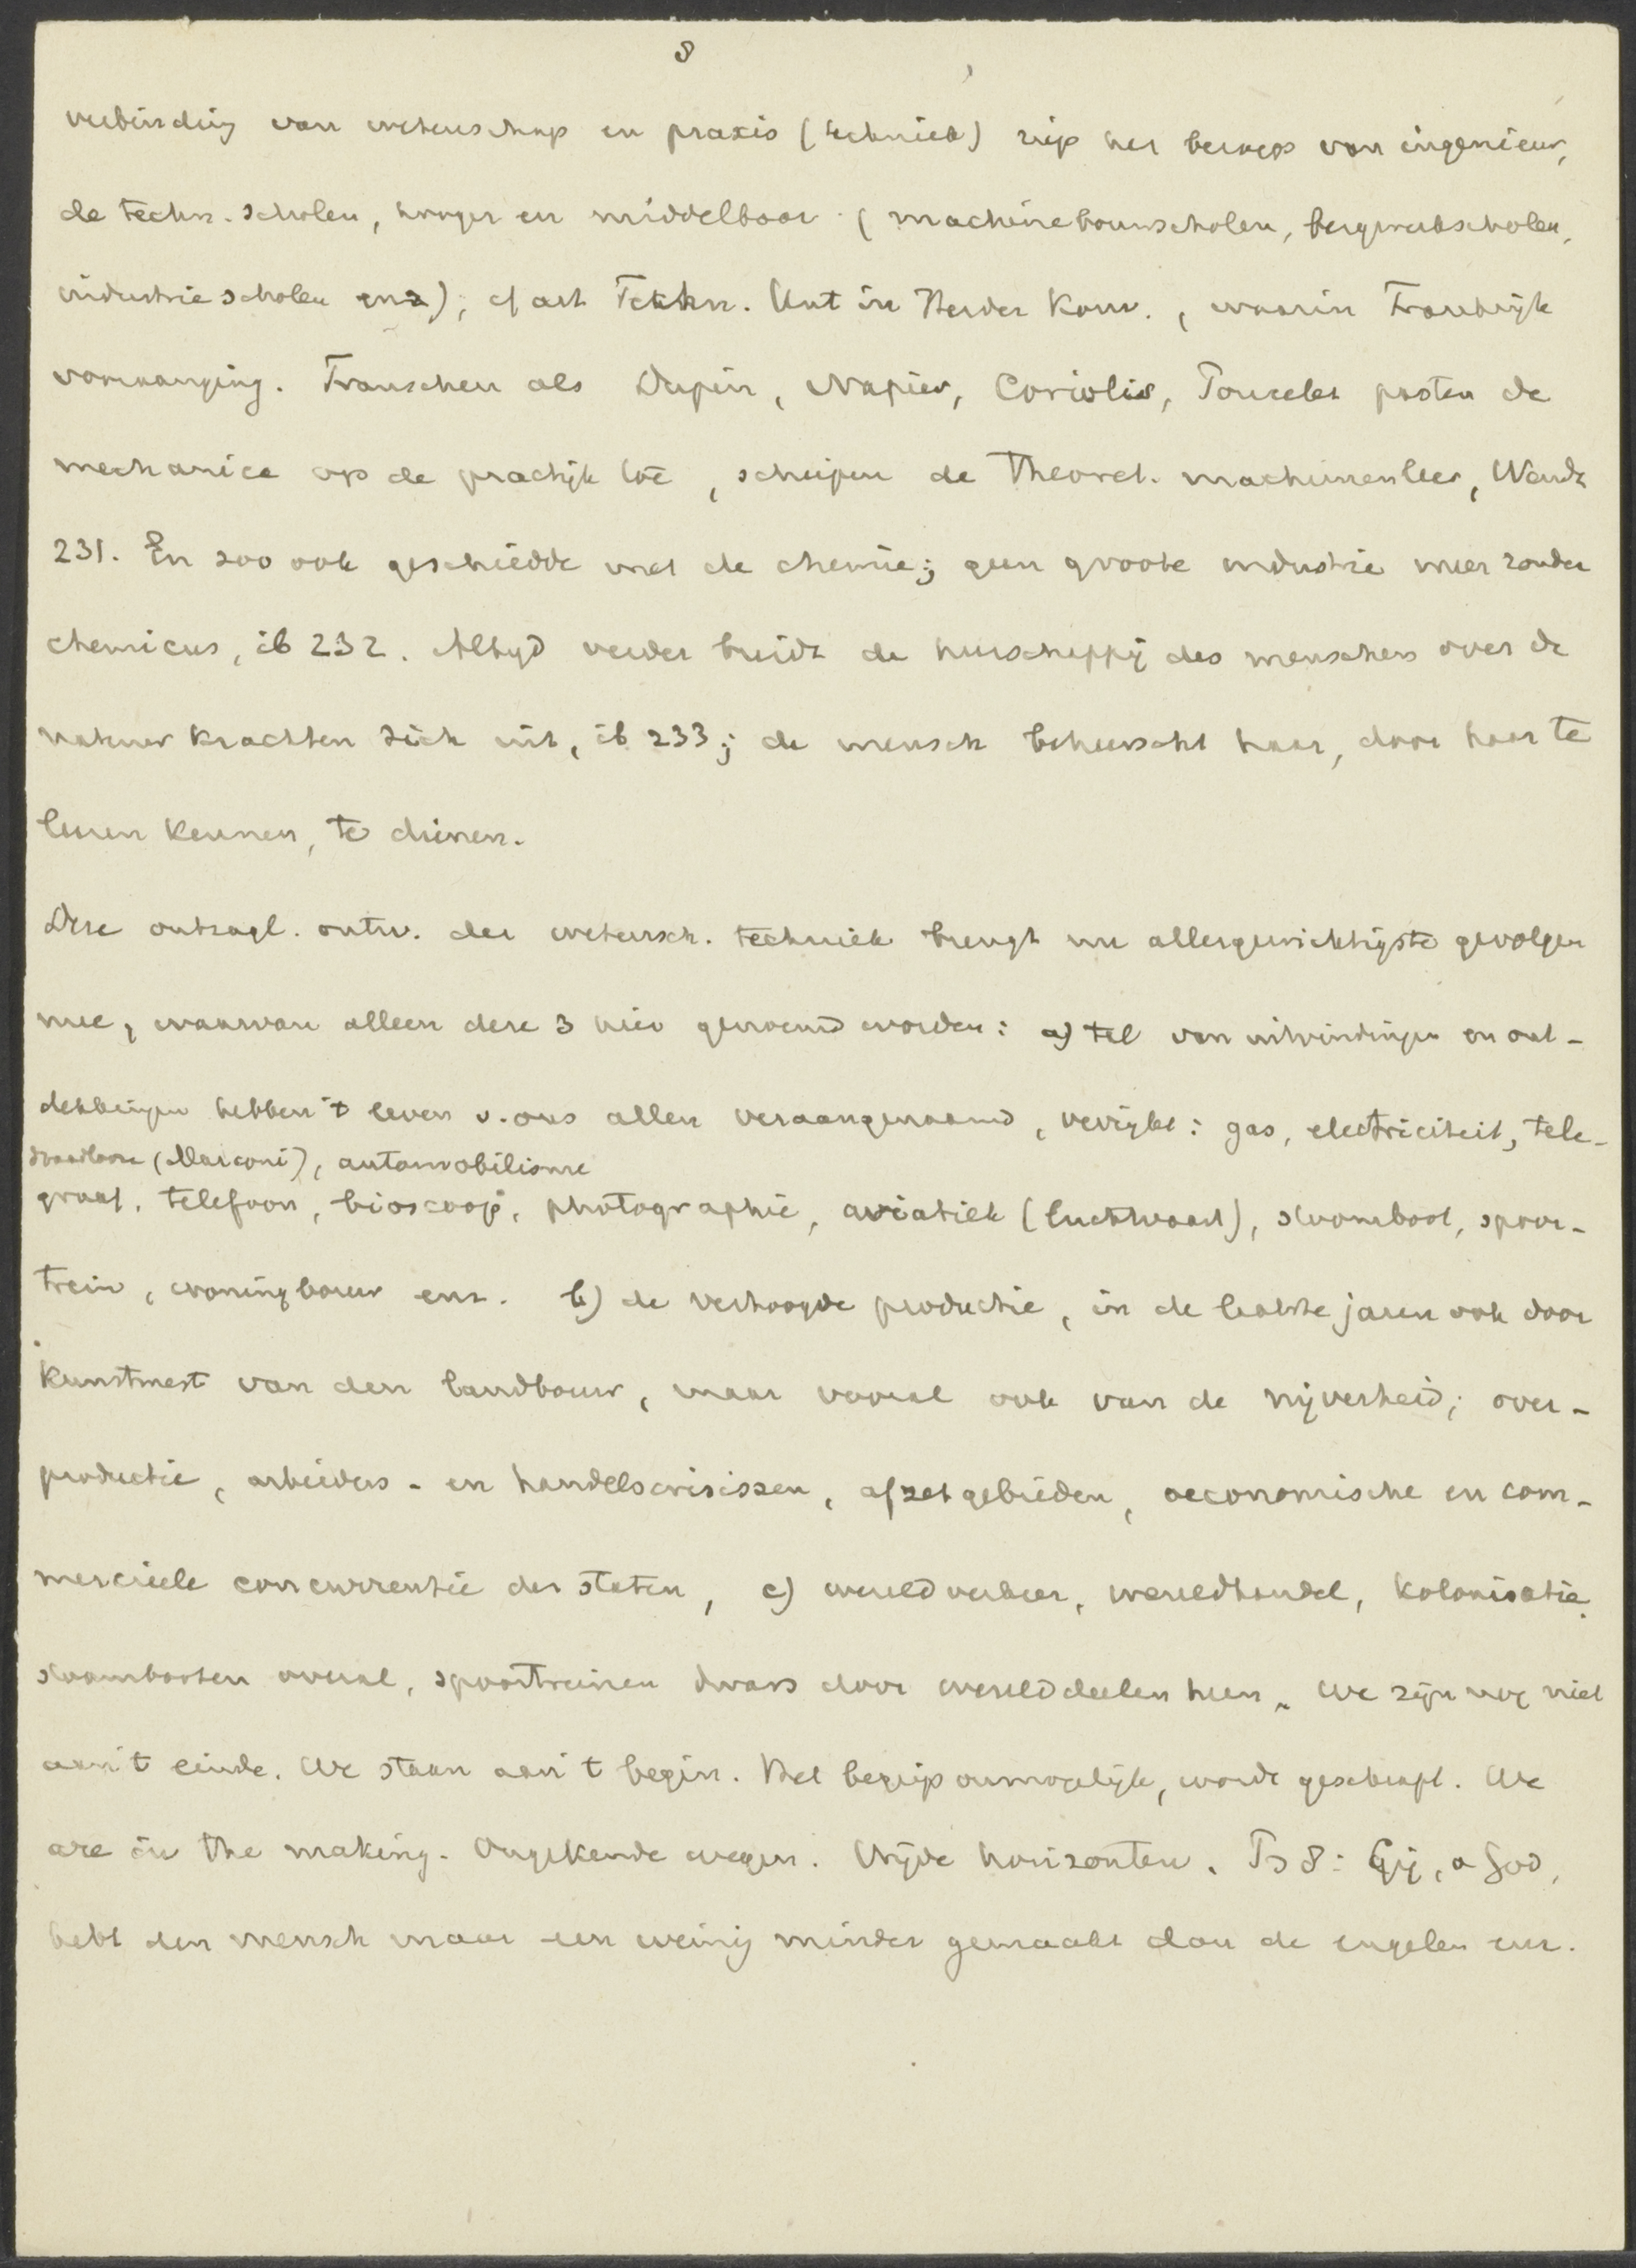 8
verbinding van wetenschap en praxis (techniek) riep het beroep van ingenieur,
de techn. scholen, hooger en middelbaar (machinebouwscholen, bergwerkscholen,
industriescholen enz), cf art Techn. Unt in Herder Konv., waarin Frankrijk
voorganging. Franschen als Dupin, Napier, Coriolis, Poncelet pasten de
mechanica op de practijk toe, schiepen de theoret. machinenleer, Wendt
231. En zoo ook geschiedde met de chemie; geen groote industrie meer zonder
chemicus, ib 232. Altyd verder breidt de heerschappij des menschen over de
natuurkrachten zich uit, ib 233; de mensch beheerscht haar, door haar te
leeren kennen, te dienen.
Deze ontzagl. ontw. der wetensch. techniek brengt nu allergewichtigste gevolgen
mee, waarvan alleen deze 3 hier genoemd worden: a) tal van uitvindingen en ont-
dekkingen hebben 't leven v. ons allen veraangenaamd, verrijkt: gas, electriciteit, tele-
draadlooze (Marconi), automobilisme
graaf, telefoon, bioscoop, photographie, aviatiek (luchtvaart), stoomboot, spoor-
trein, woningbouw enz. b) de verhoogde productie, in de laatste jaren ook door
kunstmest van den landbouw, maar vooral ook van de nijverheid; over-
productie, arbeiders- en handelscrisissen, afzetgebieden, oeconomische en com-
mercieele concurrentie der staten, c) wereldverkeer, wereldhandel, kolonisatie.
stoombooten overal, spoortreinen dwars door werelddeelen heen. We zijn nog niet
aan 't einde. We staan aan 't begin. Het begrip onmogelijk, wordt geschrapt. We
are in the making. Ongekende wegen. Wijde horizonten. Ps 8: Gij, o God,
hebt den mensch maar een weinig minder gemaakt dan de engelen enz.